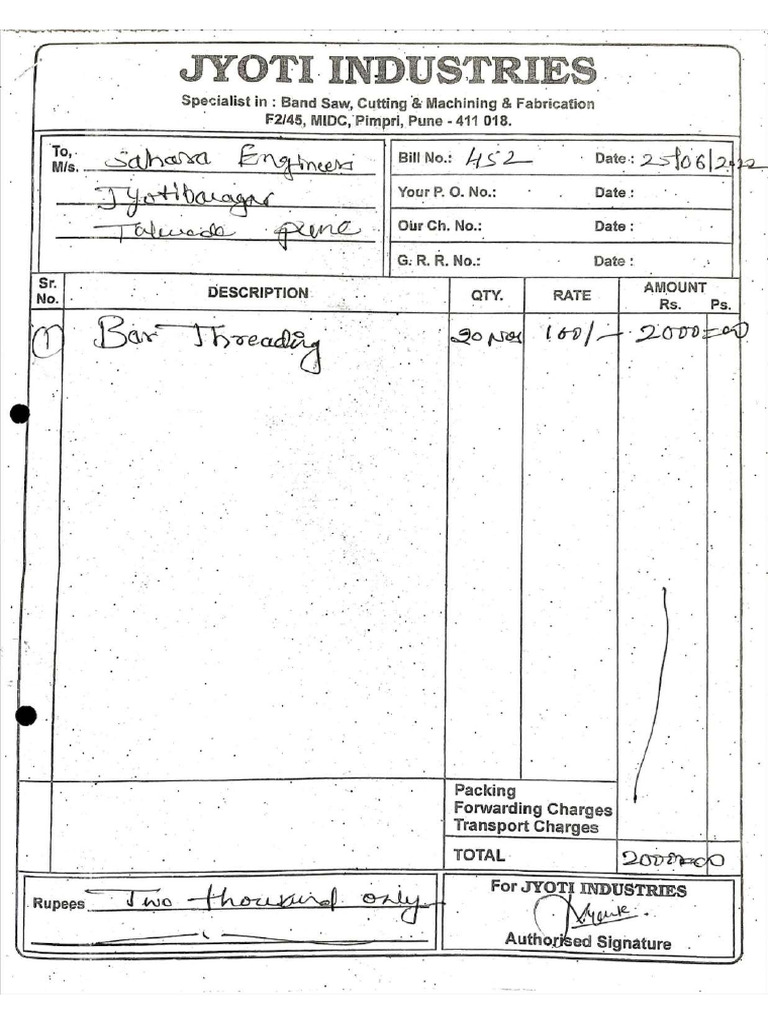 JYOTI INDUSTRIES
Specialist in : Band Saw, Cutting & Machining & Fabrication
F2/45, MIDC, Pimpri, Pune - 411 018.
To,
M/s. Sahara Engineers
Jyotibanagar
Talwade pune
Bill No.: 452 Date : 25/06/2022
Your P. O. No.: Date :
Our Ch. No.: Date :
G. R. R. No.: Date :
Sr. No. DESCRIPTION QTY. RATE AMOUNT Rs. Ps.
1 Bar Threading 20 Nos 100/- 2000=00
Packing
Forwarding Charges
Transport Charges
TOTAL 2000=00
Rupees Two thousund only
For JYOTI INDUSTRIES
Authorised Signature